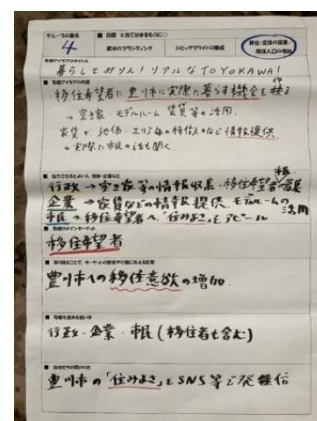 グループの番号
4
■ 目標 ※当てはまるものに○
都市のブランディング
シビックプライドの醸成
移住・定住の促進/関係人口の増加
暮らしてみりん！リアルなTOYOKAWA！
移住希望者に豊川市に実際に暮らす機会を
→ 空き家 モデルルーム 賃貸等の活用
家賃や、地価、エリア毎の特徴など情報提供
→ 実際に市民の話も聞く。
行政 → 空き家等の情報収集・移住希望者
企業 → 家賃などの情報提供 モデルルームの活用
市民 → 移住希望者へ「住みよさ」をアピール
移住希望者
豊川市への移住意欲の増加
行政・企業・市民（移住者も含む）
豊川市の「住みよさ」をSNS等で発信